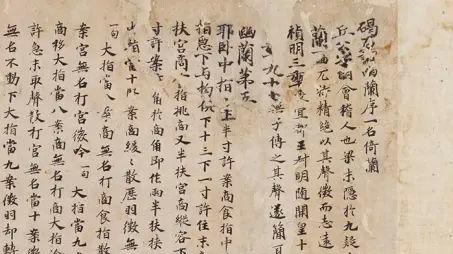 碣石調幽蘭序一名倚蘭
丘公字明會稽人也梁末隱於九疑
蘭尤特精絕以其聲微而志遠
禎明三年授宜都王叔明隨開皇十
年九十七無子傳之其聲遂簡耳
幽蘭第五
耶卧中指上半寸許案商食指中
指急下与拘俱下十三下一寸許住末商
扶宮商食指挑商又半扶宮商縱容下
寸許案角於商角即作兩半扶挾
指當十案商緩緩散歷羽徵無
一句大指當八案商無名打商食指散
案宮無名打宮徵一句大指當九
商移大指當八案商無名打商大指
許急末取聲散打宮無名當十案徵
無名不動下大指當九案徵羽却轉